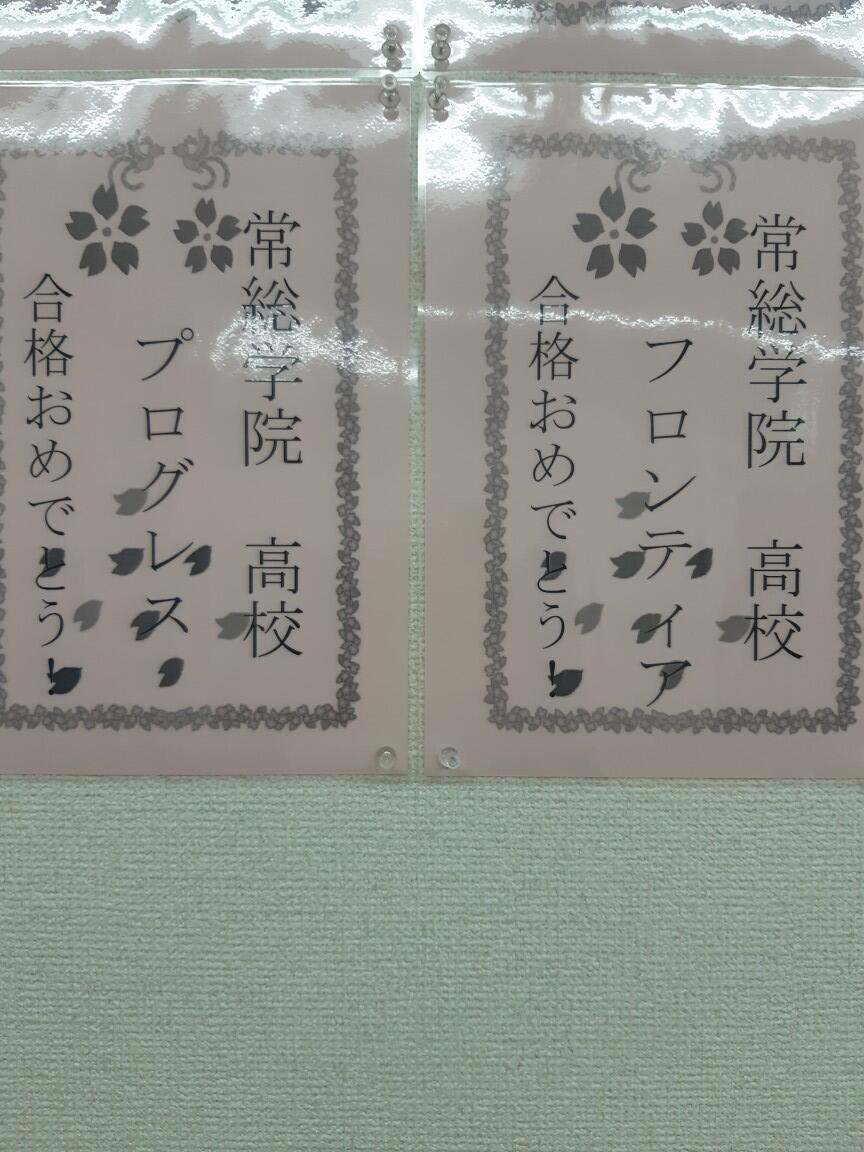 常総学院 高校
フロンティア
合格おめでとう!
常総学院 高校
プログレス
合格おめでとう!